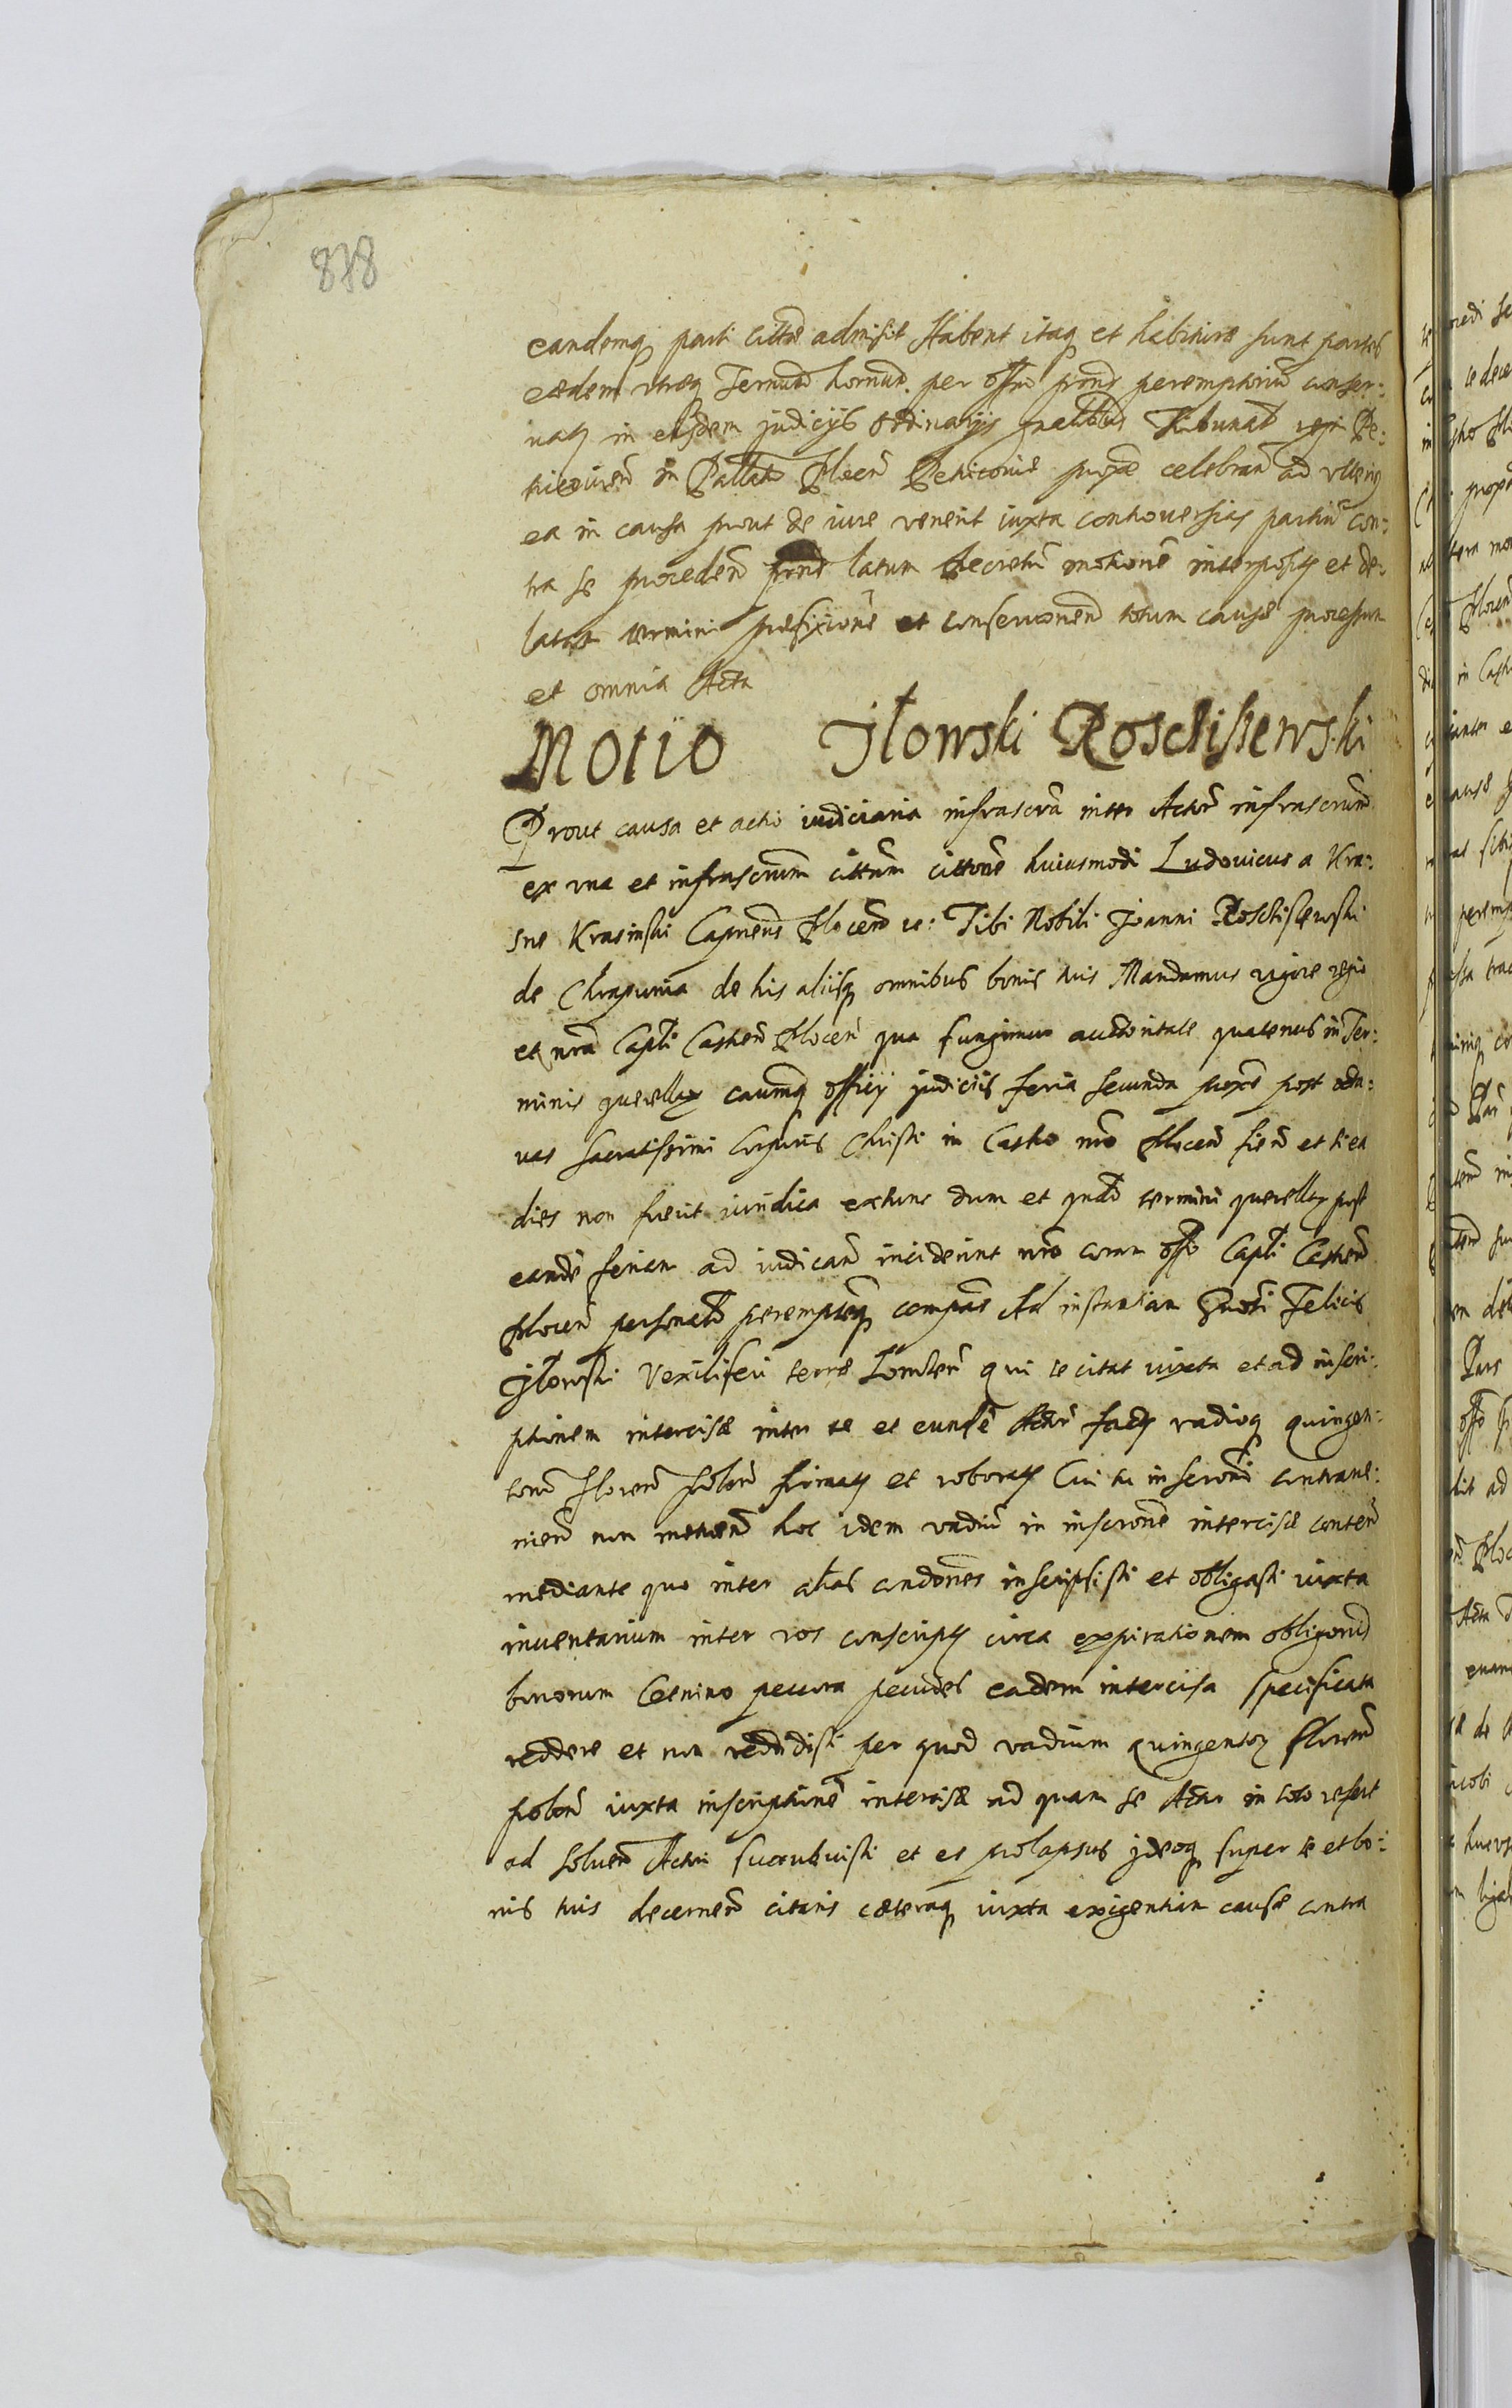 838
eandemq parti cittae admisit Habent itaq et habiturae sunt partes
eaedem utraeq Terminum per offm pnns peremptorium conser:
vatum in eisdem judicijs ordinarijs gnalibus Tribunal regni Pe:
tricovien in Pallatu Plocen Petricoviae proxe celebran ad ulterius
ea in causa prout de iure venerit iuxta controversias partium con:
tra se proceden pnns latum decretum motionem interposit et de:
latam termini praefixionem et conservationem totum causae processum
et omnia Acta
Motio Jłowski Rosciszewski
Prout causa et actio iudiciaria infrascra inter Actorem infrascrum
ex una et infrascrum cittum cittone huiusmodi Ludovicus a Kra:
sne Krasinski Capneus Plocen etc: Tibi Nobili Joanni Rosciszewski
de Chrapunia de his aliisq omnibus bonis tuis Mandamus vigore regio
et nra Capli Castren Plocen qua fungimur authoritate quatenus in Ter:
minis querellar caumq officij judiciis feria secunda proxe post octa:
vas Sacratissimi Corporis Christi in Castro nro Plocen fien et si ea
dies non fuerit iuridica extunc dum et qndo termini querellar post
eande feriam ad iudicam inciderint nro coram offo Capli Castren
Plocen personalr peremptieq compas Ad instantiam Gnosi Felicis
Jłowski Vexilliferi terrae Lomzen qui te citat iuxta et ad inscri:
ptionem intercisae inter te et eunde Actore factam vadioq quingen:
torum Floren polon firmatam et roboratam Cui tu inscroni contrave:
nien non metuen hoc idem vadium in inscrone intercisae conten
mediante quo inter alias condones inscripsisti et obligasti iuxta
inventarium inter vos conscript circa expirationem obligonis
bonorum Cetnino peccora pecudes eadem intercisa specificata
reddere et non reddidisti per quod vadium quingentor floren
polon iuxta inscriptione intercisae ad quam se Actor in toto refert
ad solven Actori succubuisti et es prolapsus ideoq super te et bo:
nis tuis decernen citaris caeteraq iuxta exigentiam causae contra